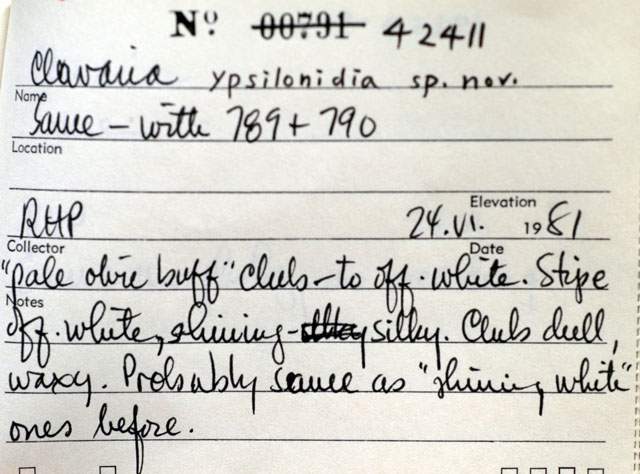 Nº 00791 42411
Clavaria ypsilonidia sp. nov.
Name
Same - with 789 + 790
Location
Elevation
RHP 24.VI. 1981
Collector Date
"pale olive buff" clubs - to off-white. Stipe
Notes
off-white, shining - silky. Clubs dull,
waxy. Probably same as "shining white"
ones before.